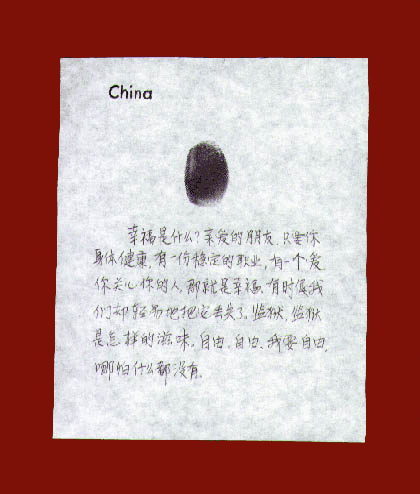 China
幸福是什么？亲爱的朋友，只要你
身体健康，有一份稳定的职业，有一个爱
你关心你的人，那就是幸福。有时候我
们却轻易地把它丢失了。监狱，监狱
是怎样的滋味。自由，自由，我要自由，
哪怕什么都没有。